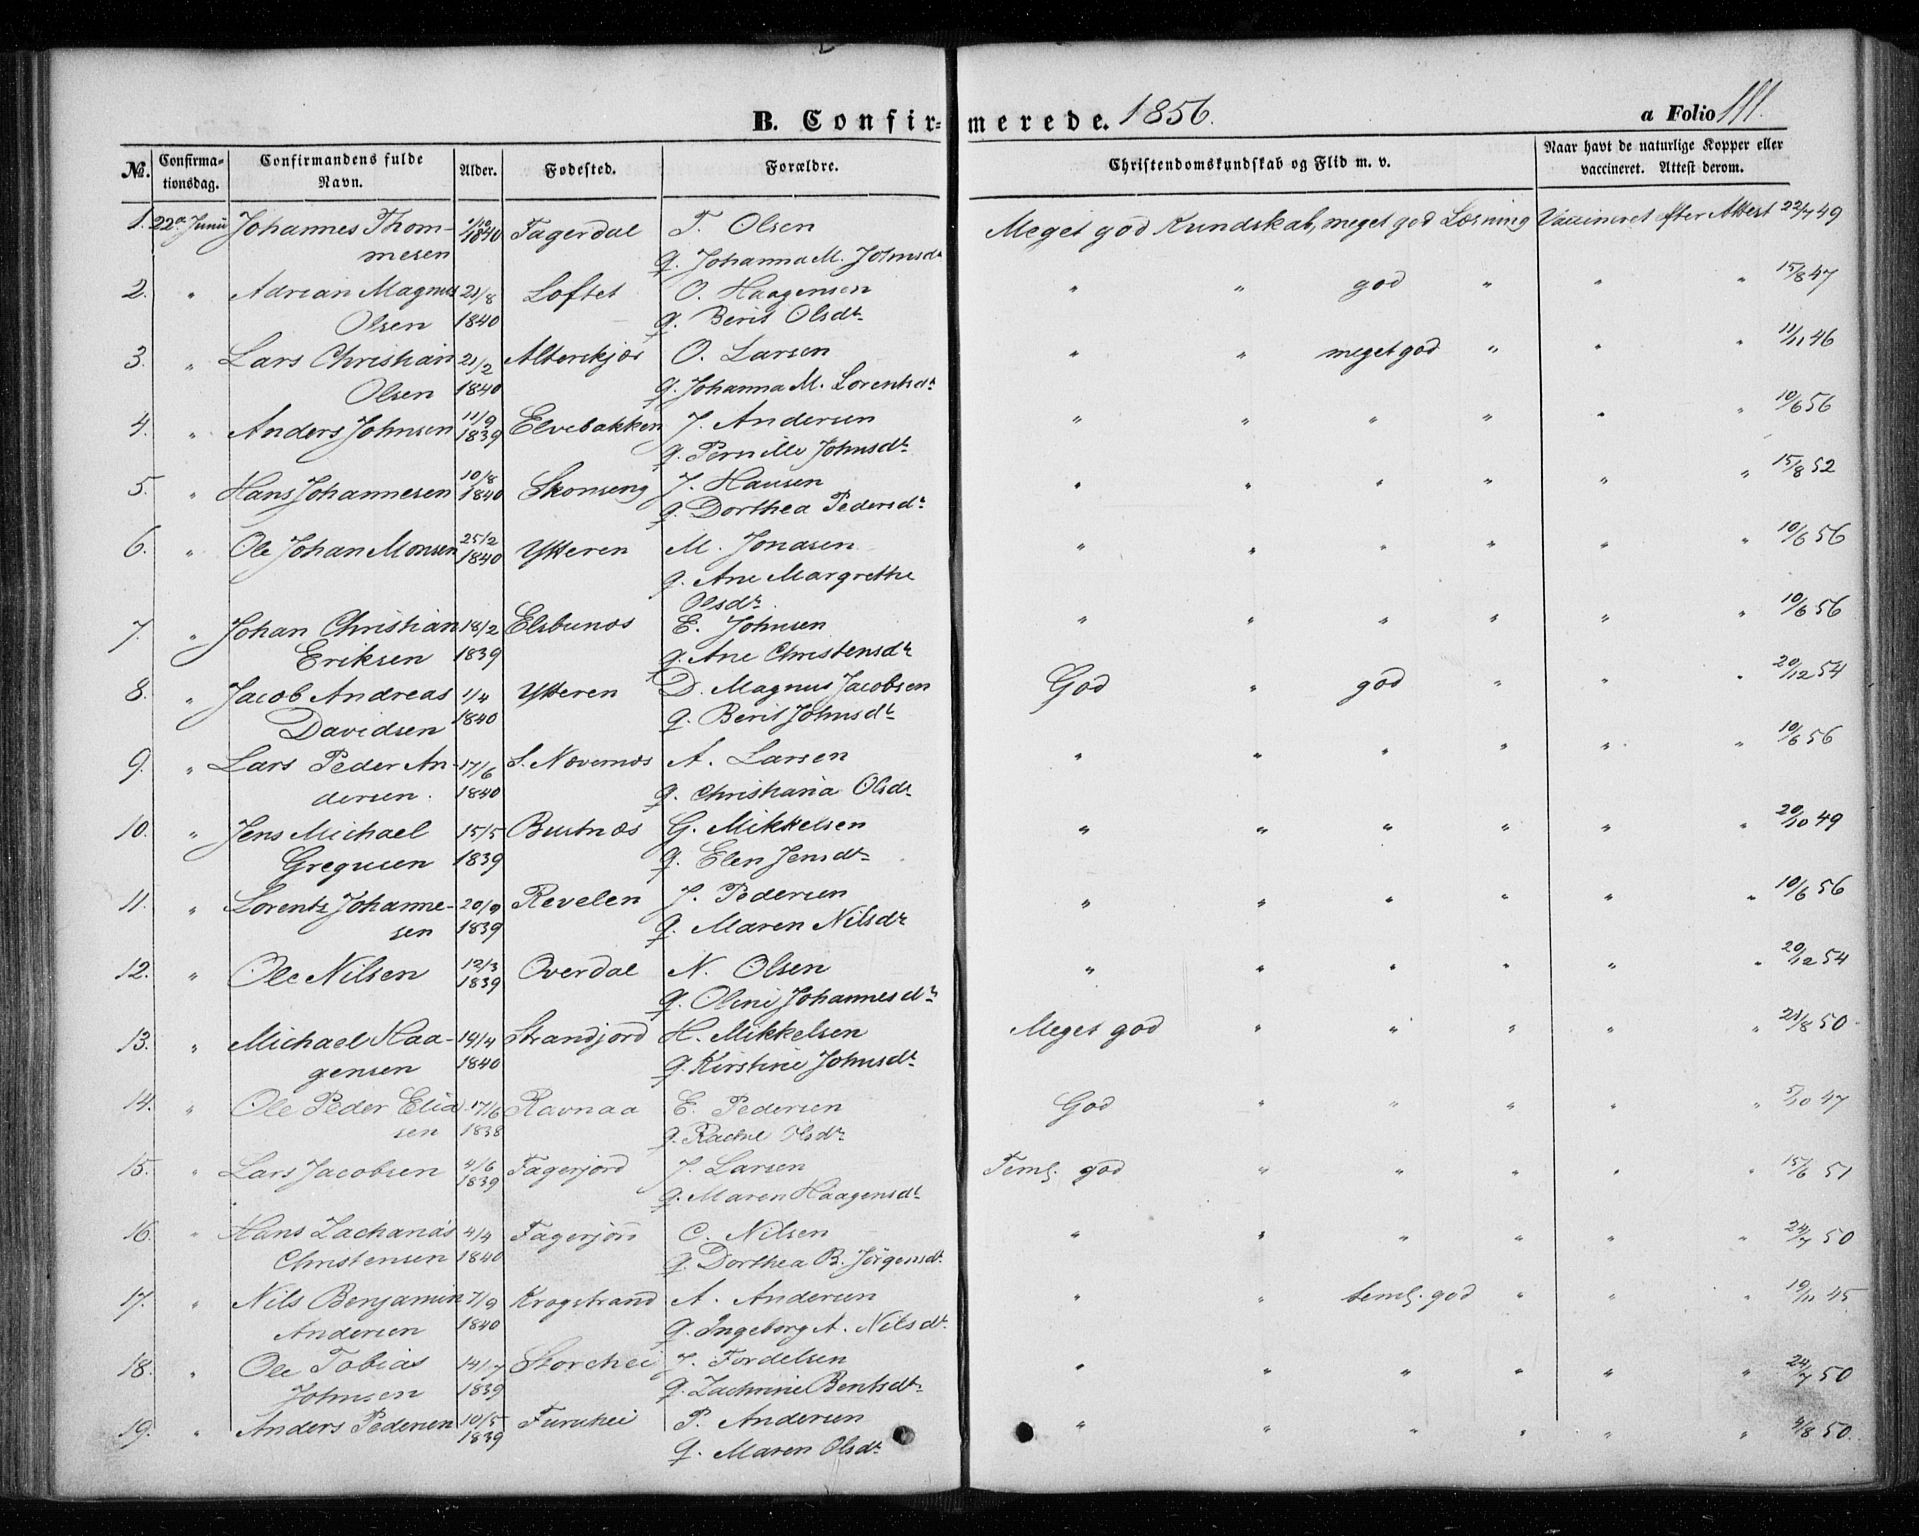 B. Confirmerede. 1856.
a Folio 111.
No. Confirmationsdag. Confirmandens fulde Navn. Alder. Fødested. Forældre. Christendomskundskab og Flid m. v. Naar havt de naturlige Kopper eller vaccineret. Attest derom.
1. 22de Junii Johannes Thom- 1840 Fagerdal T. Olsen Meget god Kundskab, meget god Læsning Vaccineret efter Attest 22/7 49
mesen q. Johanna M. Johnsdr
2. " Adrian Magnus 21/8 Loftet O. Haagensen " " god " " " 15/8 47
Olsen 1840 q. Berit Olsdr
3. " Lars Christian 21/2 Alterskjær O. Larsen " " meget god " " " 11/11 46
Olsen 1840 q. Johanna M. Lorentsdr
4. " Anders Johnsen 11/9 1839 Elvebakken J. Andersen " " " " " " 10/6 56
q. Pernille Johnsdr
5. " Hans Johannesen 10/8 1840 Skonseng J. Hansen " " " " " " 15/8 52
q. Dorthea Pedersdr
6. " Ole Johan Monsen 25/2 1840 Ytteren M. Jonasen " " " " " " 10/6 56
q. Ane Margrethe
Olsdr
7. " Johan Christian 18/2 Elsbunæs E. Johnsen " " " " " " 10/6 56
Eriksen 1839 q. Ane Christensdr
8. " Jacob Andreas 1/4 Ytteren D. Magnus Jacobsen God " god " " " 20/12 54
Davidsen 1840 q. Berit Johnsdr
9. " Lars Peder An- 17/6 S. Nævernæs A. Larsen " " " " " " 10/6 56
dersen. 1840 q. Christiana Olsdr
10. " Jens Michael 15/5 Bustnæs G. Mikkelsen " " " " " " 20/10 49
Gregusen 1839 q. Elen Jensdr
11. " Lorents Johanne- 20/9 Revelen J. Pedersen " " " " " " 10/6 56
sen 1839 q. Maren Nilsdr
12. " Ole Nilsen 12/3 1839 Overdal N. Olsen " " " " " " 20/12 54
q. Oline Johannesdr
13. " Michael Haa- 19/4 Strandjord H. Mikkelsen Meget god " " " " " 21/8 50
gensen 1840 q. Kirstine Johnsdr
14. " Ole Peder Elia- 17/6 Ravnaa E. Pedersen God " " " " " 5/10 47
sen 1838 q. Rachel Olsdr
15. " Lars Jacobsen 4/6 1839 Fagerjord J. Larsen Teml. god " " " " " 15/6 51
q. Maren Haagensdr
16. " Hans Zacharias 4/4 Fagerjord C. Nilsen " " " " " " 24/7 50
Christensen 1840 q. Dorthea B. Jörgensdr
17. " Nils Benjamin 7/9 Krogstrand A. Andersen " " teml. god " " " 19/11 45
Andersen 1840 q. Ingeborg A. Nilsdr
18. " Ole Tobias 14/7 Storchei J. Fordelsen " " " " " " 24/7 50
Johnsen 1839 q. Zachrine Bentsdr
19. " Anders Pedersen 10/5 1839 Furuhei P. Andersen " " " " " " 4/8 50.
q. Maren Olsdr